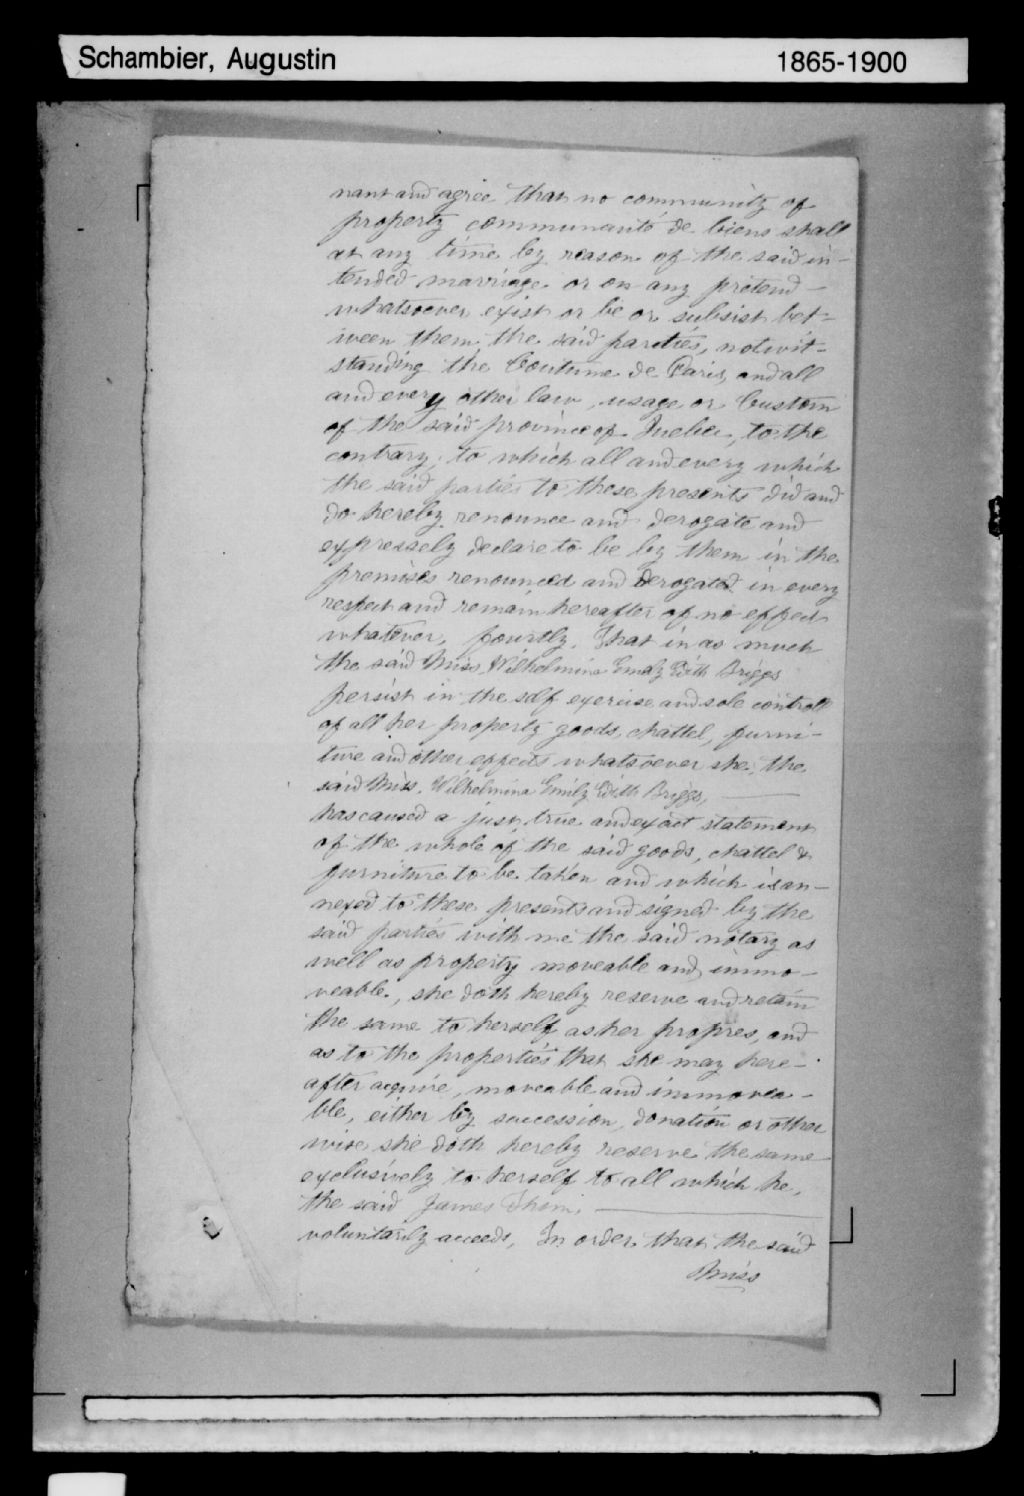 Schambier, Augustin 1865-1900
nant and agree that no community of
property communauté de biens shall
at any time by reason of the said in-
tended marriage or on any pretend
whatsoever exist or be or subsist bet-
ween them the said parties, notwit-
standing the Coutume de Paris, and all
and every other law, usage or Custom
of the said province of Quebec, to the
contrary, to which all and every which
the said parties to these presents did and
do hereby renounce and derogate and
expressely declare to be by them in the
premises renounced and derogated in every
respect and remain hereafter of no effect
whatever, fourtly, That in as much
the said Miss, Wilhelmina Emily Edith Briggs
persist in the self exercise and sole controll
of all her property goods, chattel, furni-
ture and other effects whatsoever she, the
said Miss, Wilhelmina Emily Edith Briggs,
has caused a just true and exact statement
of the whole of the said goods, chattel &
furniture to be taken and which is an-
nexed to these presents and signed by the
said parties with me the said notary as
well as property moveable and immo-
veable, she doth hereby reserve and retain
the same to herself as her propres, and
as to the properties that she may here-
after acquire, moveable and immovea-
ble, either by succession, donation or other
wise she doth hereby reserve the same
exclusively to herself to all which he,
the said James Thom,
voluntarily acceeds, In order that the said
Miss